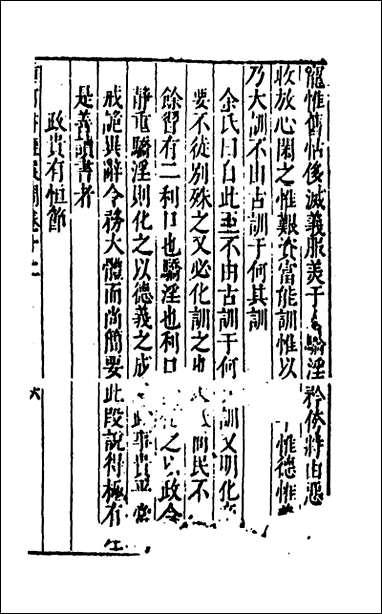 寵惟舊怙侈滅義服美于人驕淫矜侉將由惡
收放心閑之惟艱資富能訓惟以惟德惟
乃大訓不由古訓于何其訓
余氏曰自此至不由古訓于何訓又明化
要不徒別殊之又必化訓之也向民不
餘習有二利口也驕淫也利口之以政令
靜重驕淫則化之以德義之成事貴平常
戒詭異辭令務大體而尚簡要此段說得極有
是善讀書者
政貴有恒節
六